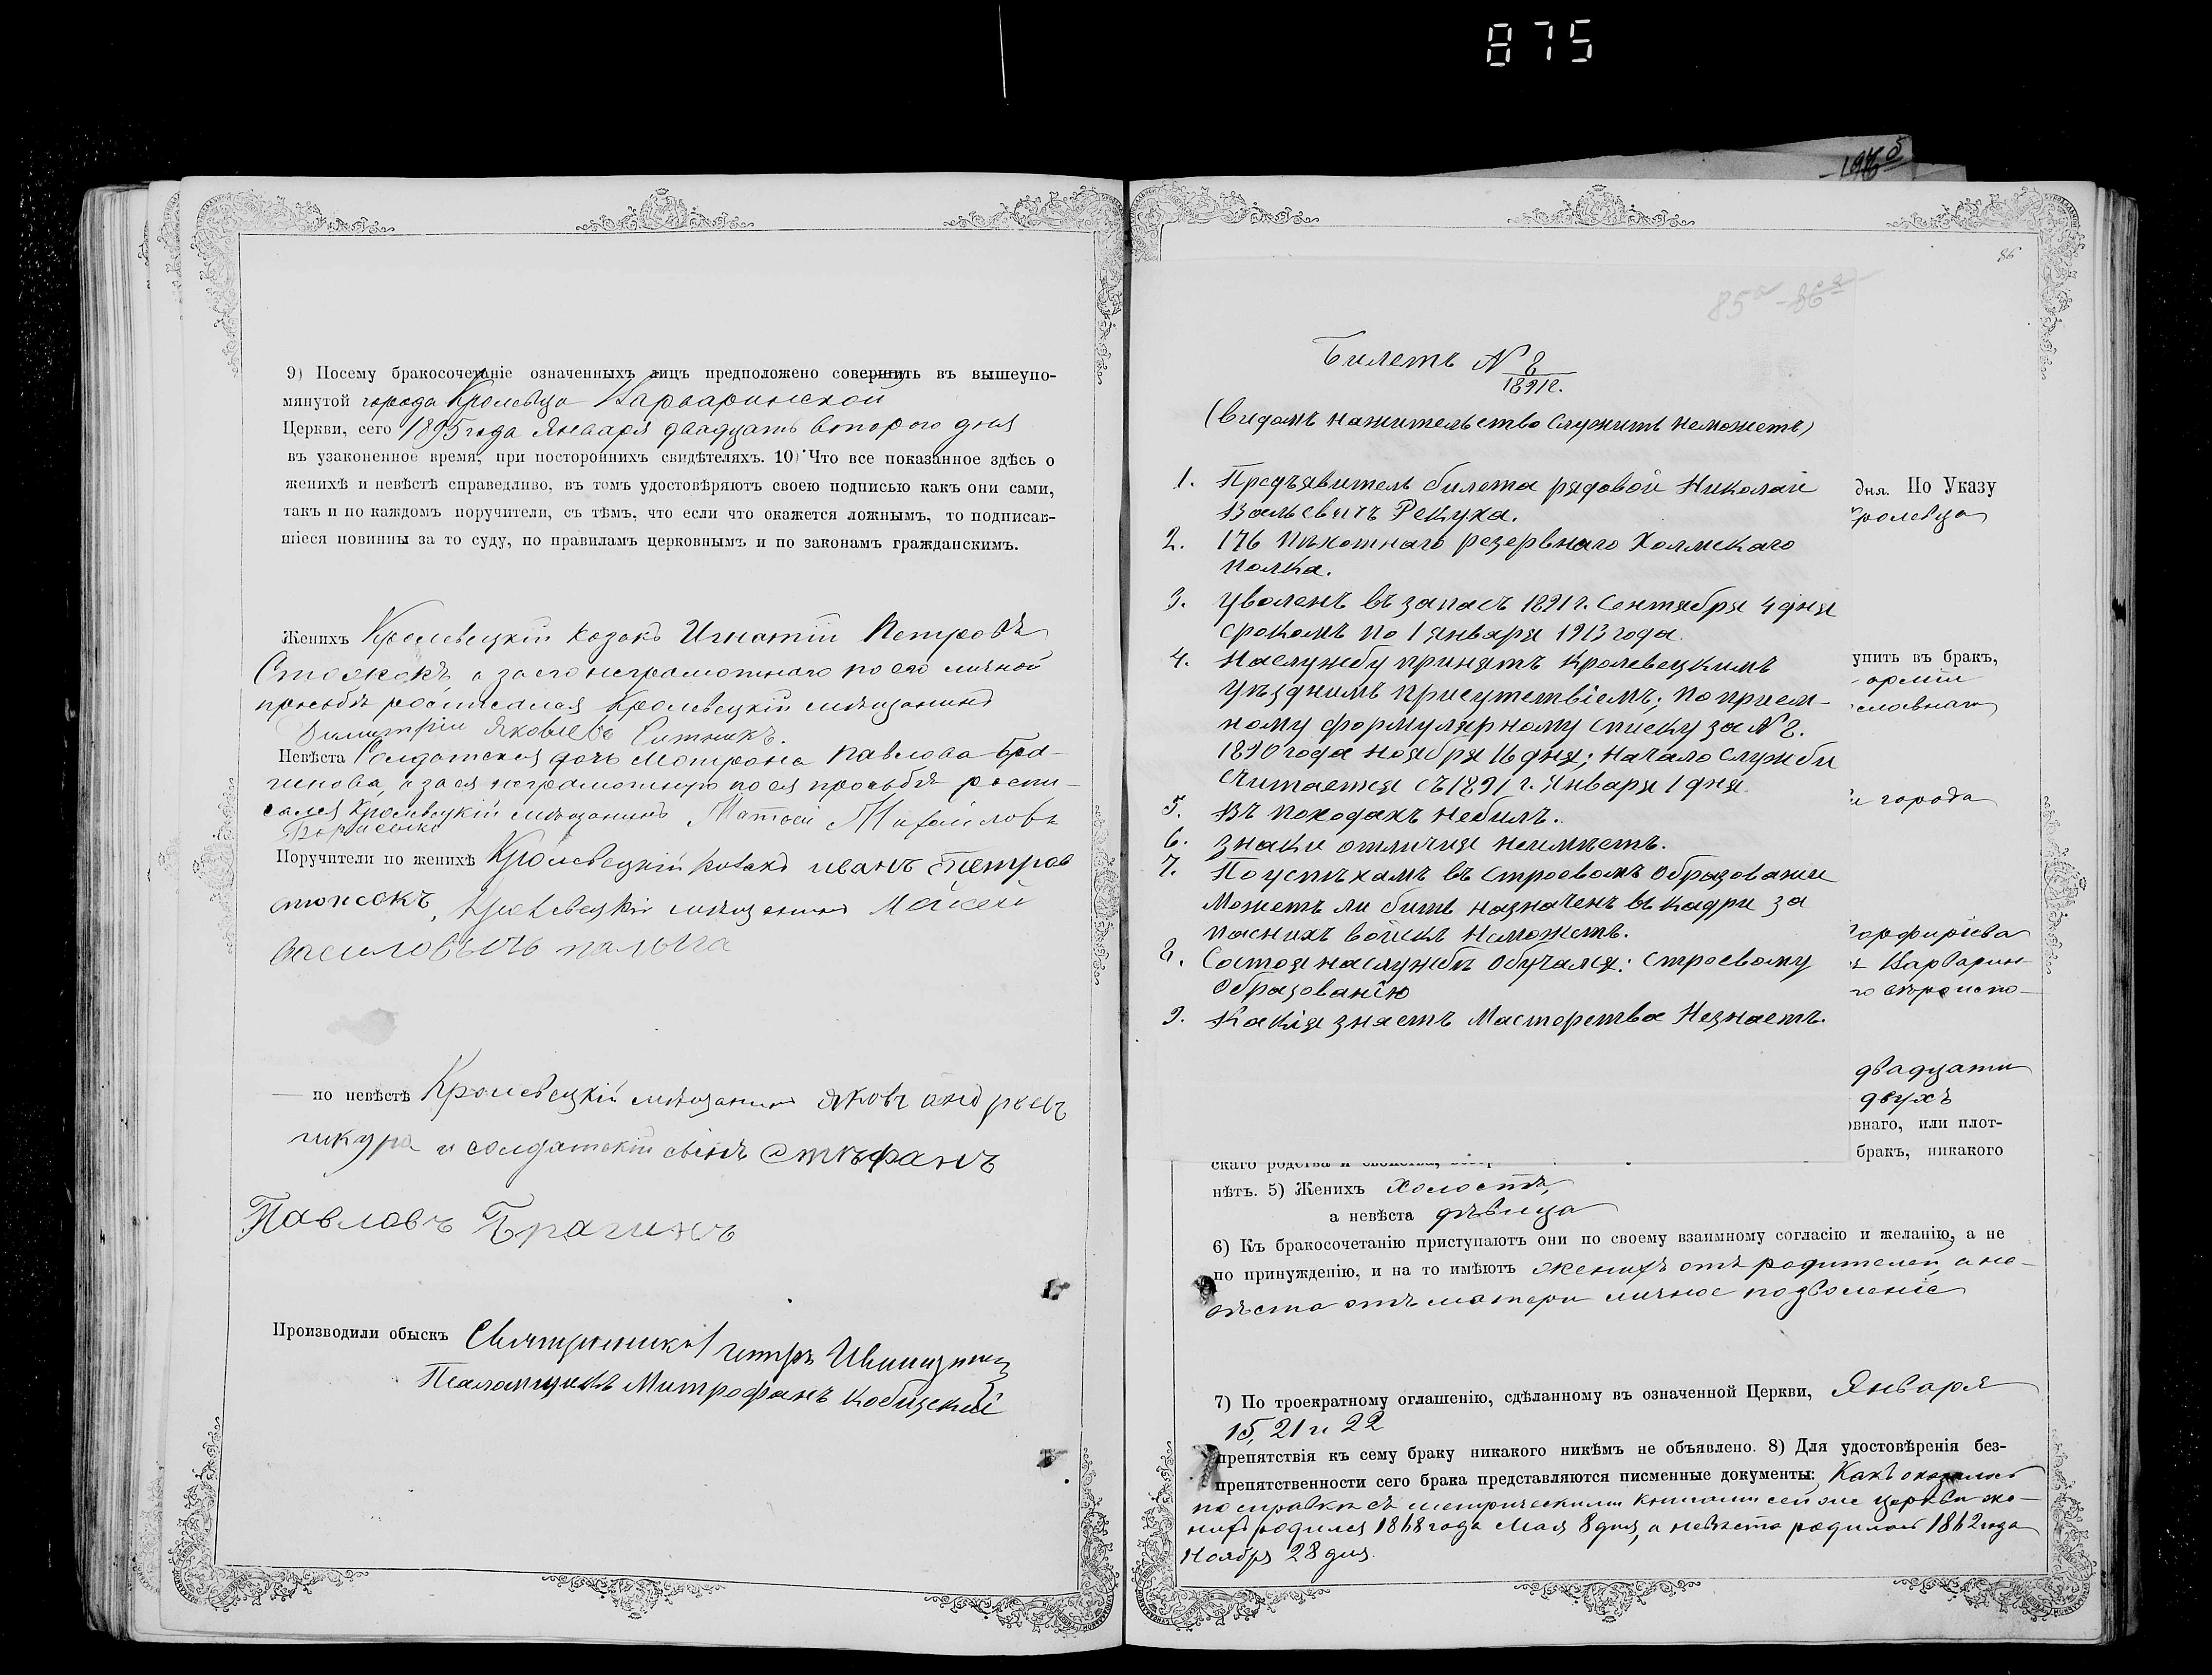 875
9) Посему бракосочетаніе означенныхъ лицъ предположено совершить въ вышеупо-
мянутой города Кролевца Варваринской
Церкви, сего 1895 года Января двадцать второго дня
въ узаконенное время, при постороннихъ свидѣтеляхъ. 10) Что все показанное здѣсь о
женихѣ и невѣстѣ справедливо, въ томъ удостовѣряютъ своею подписью какъ они сами,
такъ и по каждомъ поручители, съ тѣмъ, что если что окажется ложнымъ, то подписав-
шіеся повинны за то суду, по правиламъ церковнымъ и по законамъ гражданскимъ.
Женихъ Кролевецкій козакъ Игнатій Петровъ
а за его неграмотнаго по его личной
просьбѣ росписался Кролевецкій мѣщанинъ
Димитрій Яковлевъ Ситникъ.
Невѣста Солдатская дочь Мотрона Павлова Бра-
гинова, а за ея неграмотную по ея просьбѣ роспи-
сался Кролевецкій мѣщанинъ Матвей Михайловъ
Борисенко
Поручители по женихѣ Кролевецкій козакъ иванъ Петров
Кролевецкій мѣщанинъ Мойсей
по невѣстѣ Кролевецкій мѣщанинъ яковъ андреевъ
и солдатскій синъ Стефанъ
Павловъ Брагинъ
Производили обыскъ Священникъ Петръ
Псаломщикъ Митрофанъ Кобицскій
-196 б
86
85а -86а
Билетъ № 8
1891г.
(видомъ нажительство служить неможетъ)
1. Предъявитель билета рядовой Николай
Васильевичъ Рекуха.
2. 176 Пѣхотнаго резервнаго Холмскаго
полка.
3. уволенъ въ запасъ 1891 г. Сентября 4 дня
срокомъ по 1 января 1913 года.
4. Наслужбу принятъ Кролевецкимъ
уѣзднимъ присутствіемъ; по прием-
ному формулярному списку за № 8.
1890 года ноября 16 дня; начало служби
считается съ 1891 г. Января 1 дня.
5. Въ походахъ небилъ.
6. знаки отличия неимѣетъ.
7. По успѣхамъ въ строевомъ образовании
Можетъ ли быть назначенъ въ кадри за
пасныхъ войскъ неможетъ.
8. Состоя наслужбѣ обучался: строевому
образованію
9. Какія знаетъ Мастерства Незнаетъ.
дня. По Указу
Кролевца
упить въ бракъ,
арміи
славнаго
города
Порфирієва
Варварин-
двадцати
двухъ
внаго, или плот-
бракъ, никакого
скаго родства и свойства,
нѣтъ. 5) Женихъ холостъ,
а невѣста дѣвица
6) Къ бракосочетанію приступаютъ они по своему взаимному согласію и желанію, а не
по принужденію, и на то имѣютъ женихъ отъ родителей, а не-
вѣста отъ матери личное позволеніе
7) По троекратному оглашенію, сдѣланному въ означенной Церкви, Января
15, 21 и 22
препятствія къ сему браку никакого никѣмъ не объявлено. 8) Для удостовѣренія без-
препятственности сего брака представляются писменные документы: Какъ оказалось
по справкѣ съ метрическими книгами сей же церкви же-
нихъ родился 1868 года Мая 8 дня, а невѣста родилась 1862 года
Ноября 28 дня.